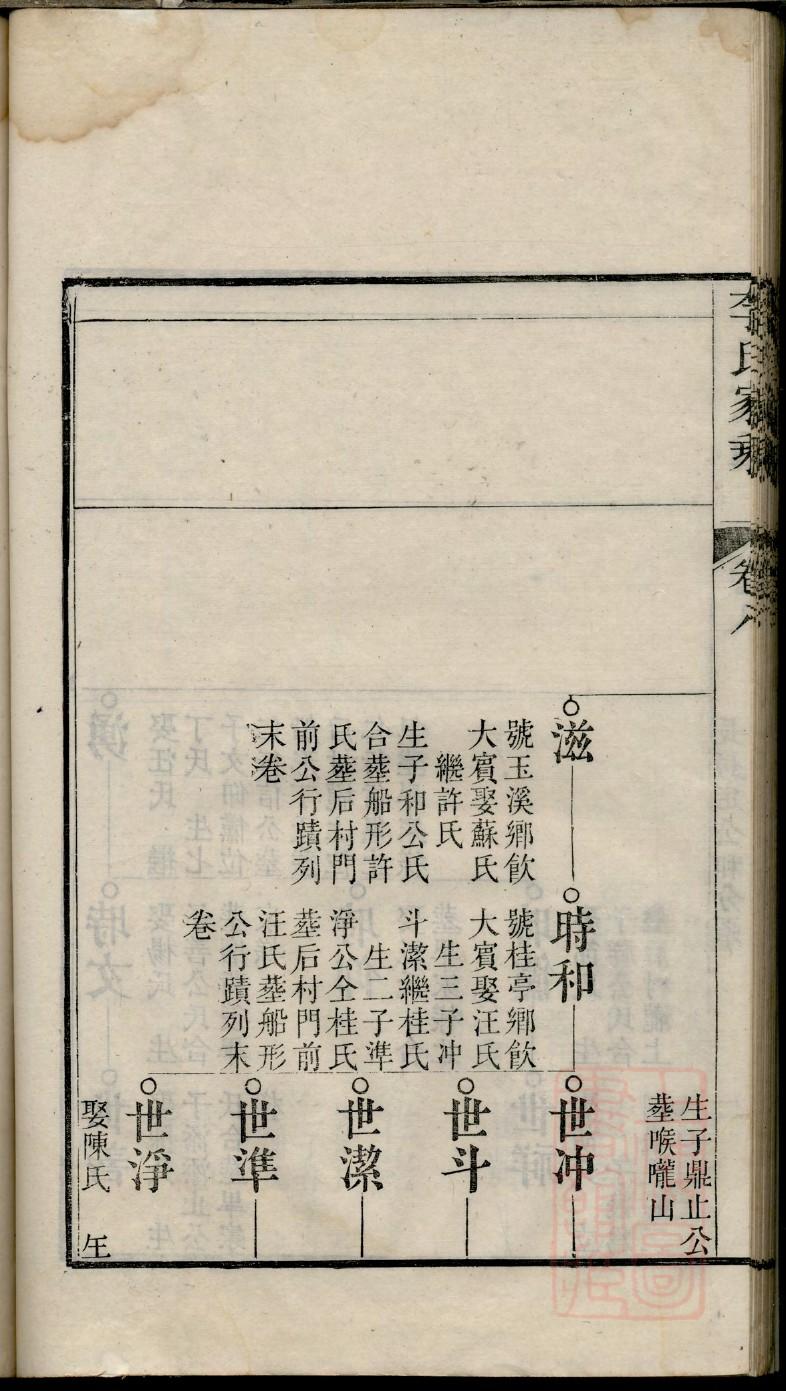 李氏家乘
卷八
生子鼎止公
塟喉嚨山
滋
號玉溪鄉飲
大賓娶蘇氏
繼許氏
生子和公氏
合塟船形許
氏塟后村門
前公行蹟列
末卷
時和
號桂亭鄉飲
大賓娶汪氏
生三子冲
斗潔繼桂氏
生二子準
淨公仝桂氏
塟后村門前
汪氏塟船形
公行蹟列末
卷
世冲
世斗
世潔
世準
世淨
娶陳氏